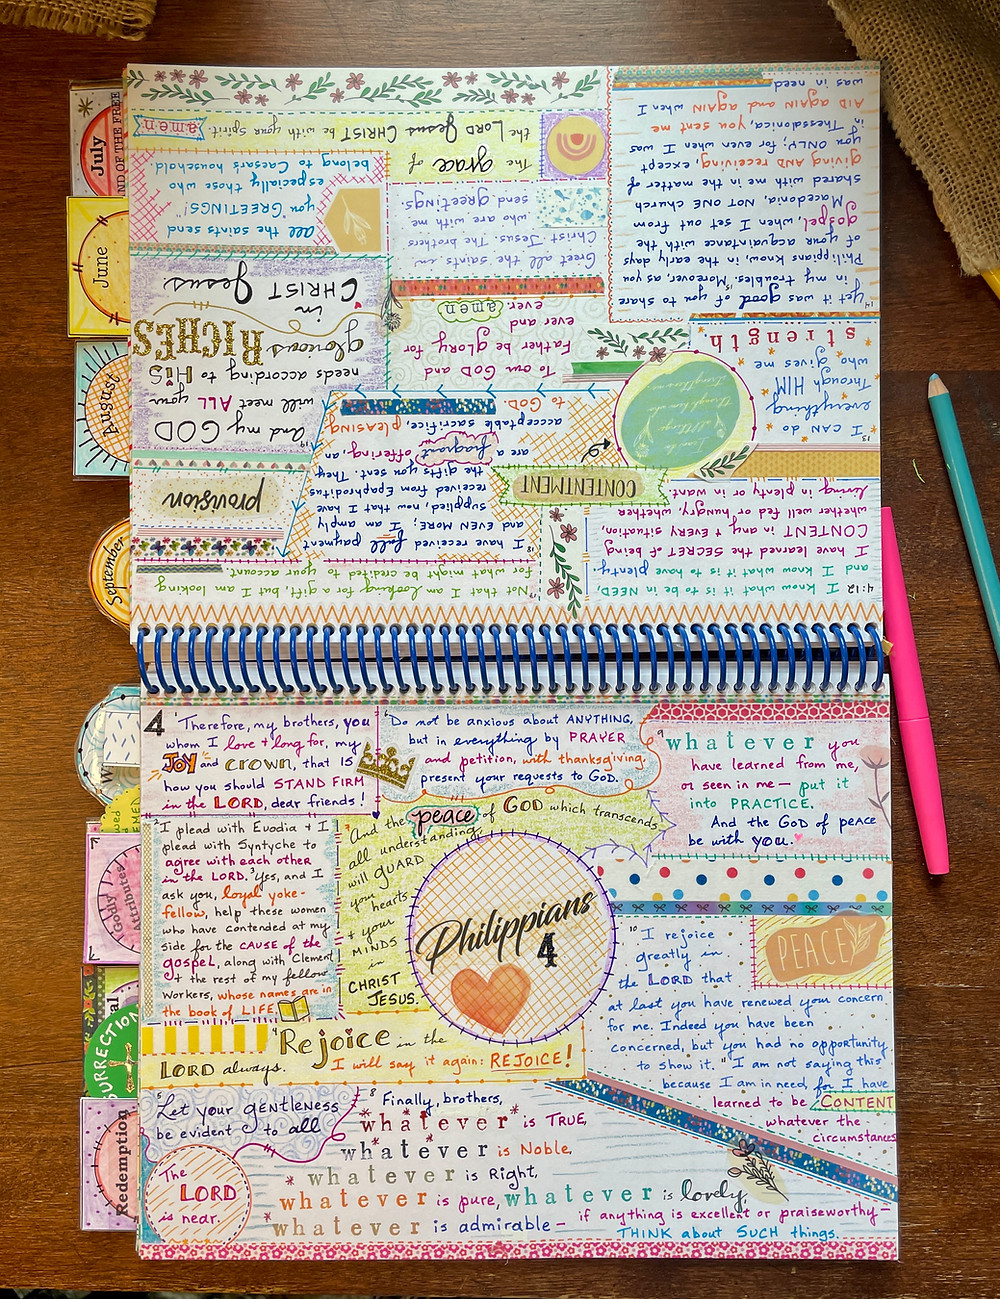 4
¹Therefore, my brothers, you
whom I love + long for, my
JOY and crown, that IS
how you should STAND FIRM
in the LORD, dear friends!
²I plead with Euodia + I
plead with Syntyche to
agree with each other
in the LORD. ³Yes, and I
ask you, loyal yoke-
fellow, help these women
who have contended at my
side for the cause of the
gospel, along with Clement
+ the rest of my fellow
workers, whose names are in
the book of LIFE.
⁴Rejoice in the
LORD always.
I will say it again: REJOICE!
⁵Let your gentleness
be evident to all
The
LORD
is near.
⁶Do not be anxious about ANYTHING,
but in everything by PRAYER
and petition, with thanksgiving,
present your requests to God.
⁷And the peace of GOD which transcends
all understanding,
will GUARD
your
hearts
+ your
MINDS
in
CHRIST
JESUS.
Philippians
4
⁸Finally, brothers,
whatever is TRUE,
whatever is Noble,
whatever is Right,
whatever is pure, whatever is lovely,
whatever is admirable - if anything is excellent or praiseworthy -
THINK about SUCH things.
⁹whatever you
have learned from me,
or seen in me - put it
into PRACTICE.
And the GOD of peace
be with you.
PEACE
¹⁰I rejoice
greatly in
the LORD that
at last you have renewed your concern
for me. Indeed you have been
concerned, but you had no opportunity
to show it. ¹¹I am not saying this
because I am in need, for I have
learned to be CONTENT
whatever the
circumstances
4:12 I know what it is to be in NEED
and I know what it is to have plenty.
I have learned the SECRET of being
CONTENT in any + EVERY situation,
whether well fed or hungry, whether
living in plenty or in want.
CONTENTMENT
¹³I CAN do
everything
Through HIM
who gives me
strength
¹⁴Yet it was good of you to share
in my troubles. ¹⁵Moreover, as you
Philippians know, in the early days
of your acquaintance with the
gospel, when I set out from
Macedonia, NOT ONE church
shared with me in the matter of
giving AND receiving, except
you ONLY; for even when I was
in Thessalonica, you sent me
AID AGAIN and AGAIN when I
was in need
¹⁷Not that I am looking for a gift, but I am looking
for what might be credited to your account.
¹⁸I have received full payment
and EVEN MORE; I am amply
supplied, now that I have
received from Epaphroditus
the gifts you sent. They
are a fragrant offering, an
acceptable sacrifice, pleasing
to GOD.
provision
¹⁹And my GOD
will meet ALL your
needs according to HIS
glorious
RICHES
in
CHRIST Jesus
To our GOD and
Father be glory for
ever and
ever.
amen
Greet all the saints in
Christ Jesus. The brothers
who are with me
send greetings.
all the saints send
you "GREETINGS!"
especially those who
belong to Caesar's household.
The grace of
the LORD Jesus CHRIST be with your spirit.
amen
July
ND OF THE FREE
June
August
September
W
Godly
Attributes
al
SURRECTION
Redemption